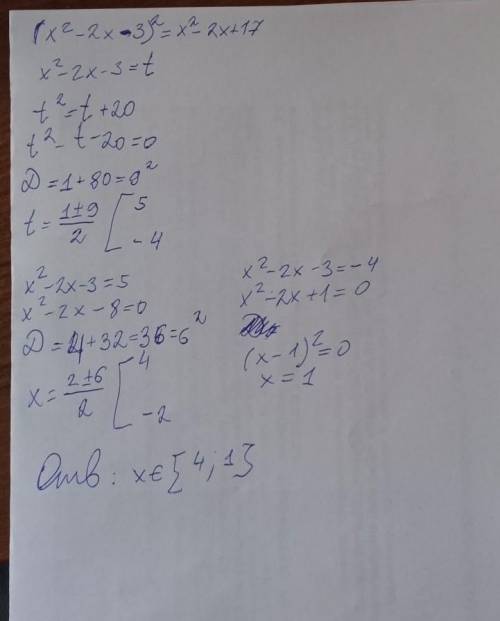 (x² - 2x - 3)² = x² - 2x + 17
x² - 2x - 3 = t
t² = t + 20
t² - t - 20 = 0
D = 1 + 80 = 9²
t = (1 ± 9)/2 [ 5
- 4
x² - 2x - 3 = 5
x² - 2x - 8 = 0
D = 4 + 32 = 36 = 6²
x = (2 ± 6)/2 [ 4
- 2
x² - 2x - 3 = - 4
x² - 2x + 1 = 0
(x - 1)² = 0
x = 1
Отв: x ∈ {4; 1}